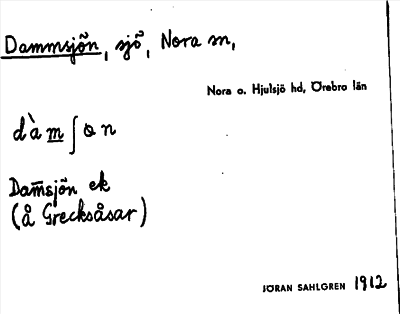 Dammsjön, sjö, Nora sn,
Nora o. Hjulsjö hd, Örebro län
dàmʃɵn
Dam̅sjön ek
(å Grecksåsar)
JÖRAN SAHLGREN 1912